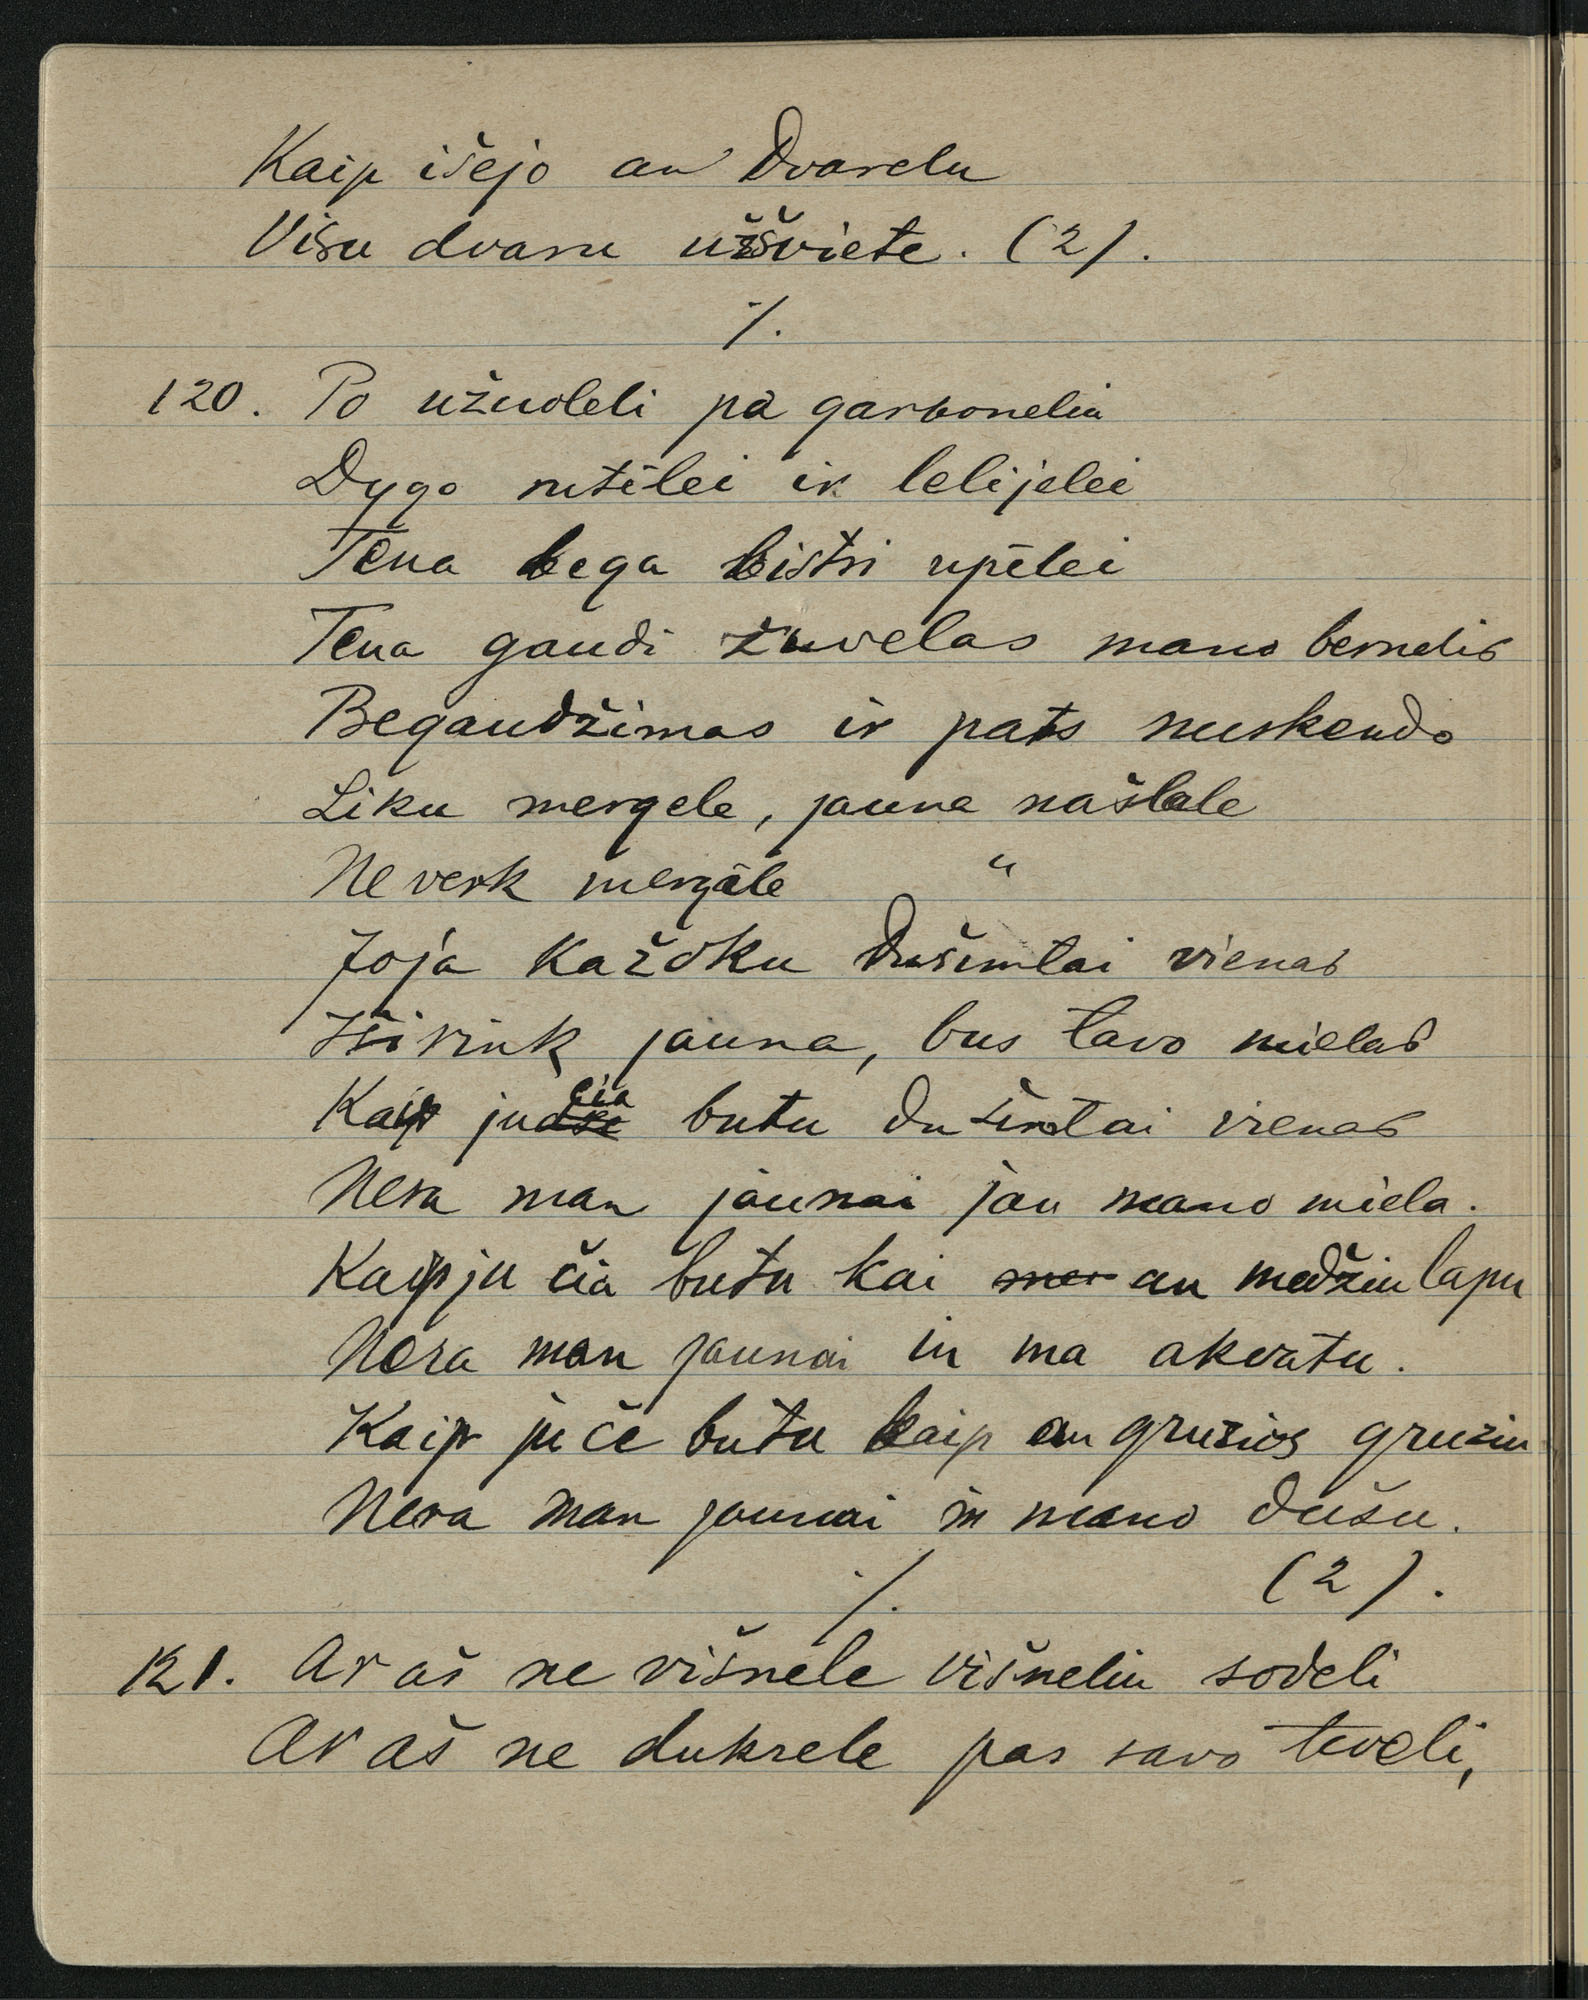 Kaip išejo an Dvarelu
Visu dvaru užšviete. (2).
·/.
120. Po užuoleli pa garboneliu
Dygo rutēlei ir lelijelei
Tena bega bistri upēlei
Tena gaudi žuvelas mano bernelis
Begaudžimas ir pats nuskendo
Liku mergele, jauna našlale
Ne verk mergēle "
Joja Kažoku Dušimtai vienas
Išsirink jauna, bus tavo mielas
Kaip ju čia butu du šimtai vienas
Nera man jaunai jau mano miela.
Kaip ju čia butu kai an medžiu lapu
Nera man jaunai in ma akvatu.
Kaip ju če butu kaip an grušios grušiu
Nera man jaunai in mano dušu.
·/. (2).
121. Ar aš ne višnele višneliu sodeli
Ar aš ne dukrele pas savo teveli,